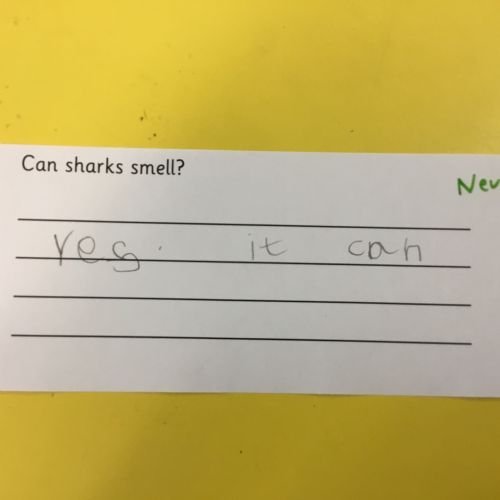 Can sharks smell?
Neu
yes. it can